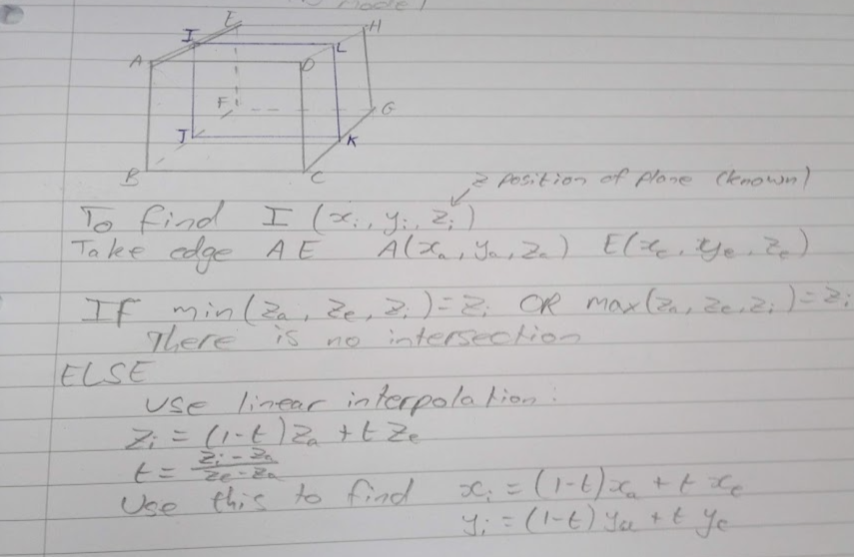 model
E
H
I
L
A
D
F
G
J
K
B
C
z position of plane (known)
To find I (xᵢ, yᵢ, zᵢ)
Take edge AE A(xₐ, yₐ, zₐ) E(xₑ, yₑ, zₑ)
IF min(zₐ, zₑ, zᵢ)=zᵢ OR max(zₐ, zₑ, zᵢ)=zᵢ
There is no intersection
ELSE
Use linear interpolation:
zᵢ = (1-t)zₐ + t zₑ
t = (zᵢ - zₐ)/(zₑ - zₐ)
Use this to find xᵢ = (1-t)xₐ + t xₑ
yᵢ = (1-t)yₐ + t yₑ